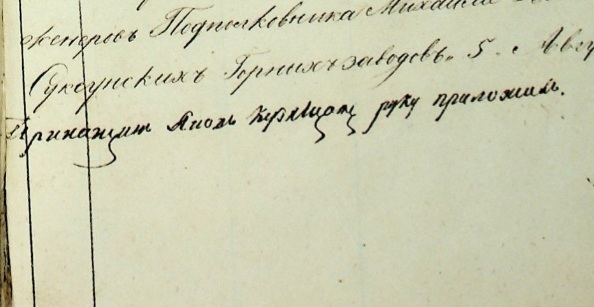 женеровъ Подполковника Михаила
Суксунскихъ Горныхъ заводовъ. 5. Авгу
Прикащикъ Яковъ Кузнецовъ руку приложилъ.